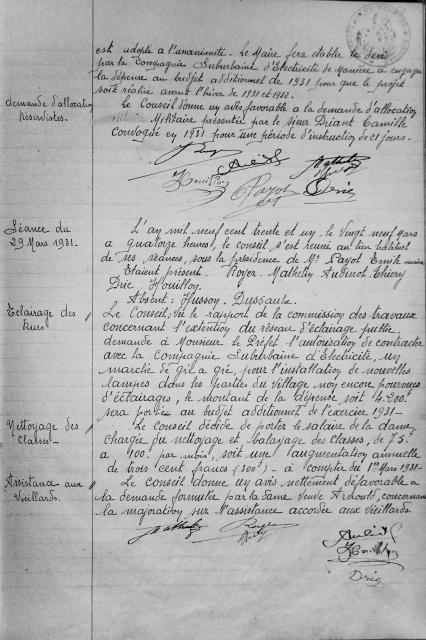 est adopté à l'unanimité. Le Maire fera établir le devis
par la Compagnie Suburbaine d'Electricité de Manière à engager
la dépense au budget additionnel de 1931 pour que le projet
soit réalisé avant l'hiver de 1931 et 1932.
demande d'allocation
Le Conseil donne un avis favorable a la demande d'allocation
Militaire présentée par le sieur Driant Camille
Convoqué en 1931 pour une période d'instruction de 21 jours.
Payot
Drié
Séance du
29 Mars 1931.
L'an mil neuf cent trente et un, le Vingt neuf Mars
a quatorze heures, le conseil s'est réuni au lieu habituel
de ses séances, sous la présidence de Mr Payot Emile maire
Etaient présent. Royer. Mathelin Aubenot Thiery
Drié. Houillon.
Absent: Husson. Dussaulx.
Eclairage des
rues
Le Conseil, vu le rapport de la commission des travaux
concernant l'extention du réseau d'éclairage public,
demande à Monsieur le Préfet l'autorisation de contracter
avec la Compagnie Suburbaine d'Electricité, un
marché de gré a gré, pour l'installation de nouvelles
lampes dans les parties du village non encore pourvues
d'éclairages, le montant de la dépense soit 4.200f
sera portée au budget additionnel de l'exercice 1931-
Nettoyage des
Classes-
Le Conseil décide de porter le salaire de la dame
chargée du nettoyage et balayage des classes, de 75f
a 100f par mois, soit une augmentation annuelle
de trois cent francs (300f) - à compter du 1er Mars 1931-
Assistance aux
Vieillards.
Le Conseil donne un avis nettement défavorable a
la demande formulée par la dame Veuve concernant
la majoration sur l'assistance accordée aux Vieillards.
Drié